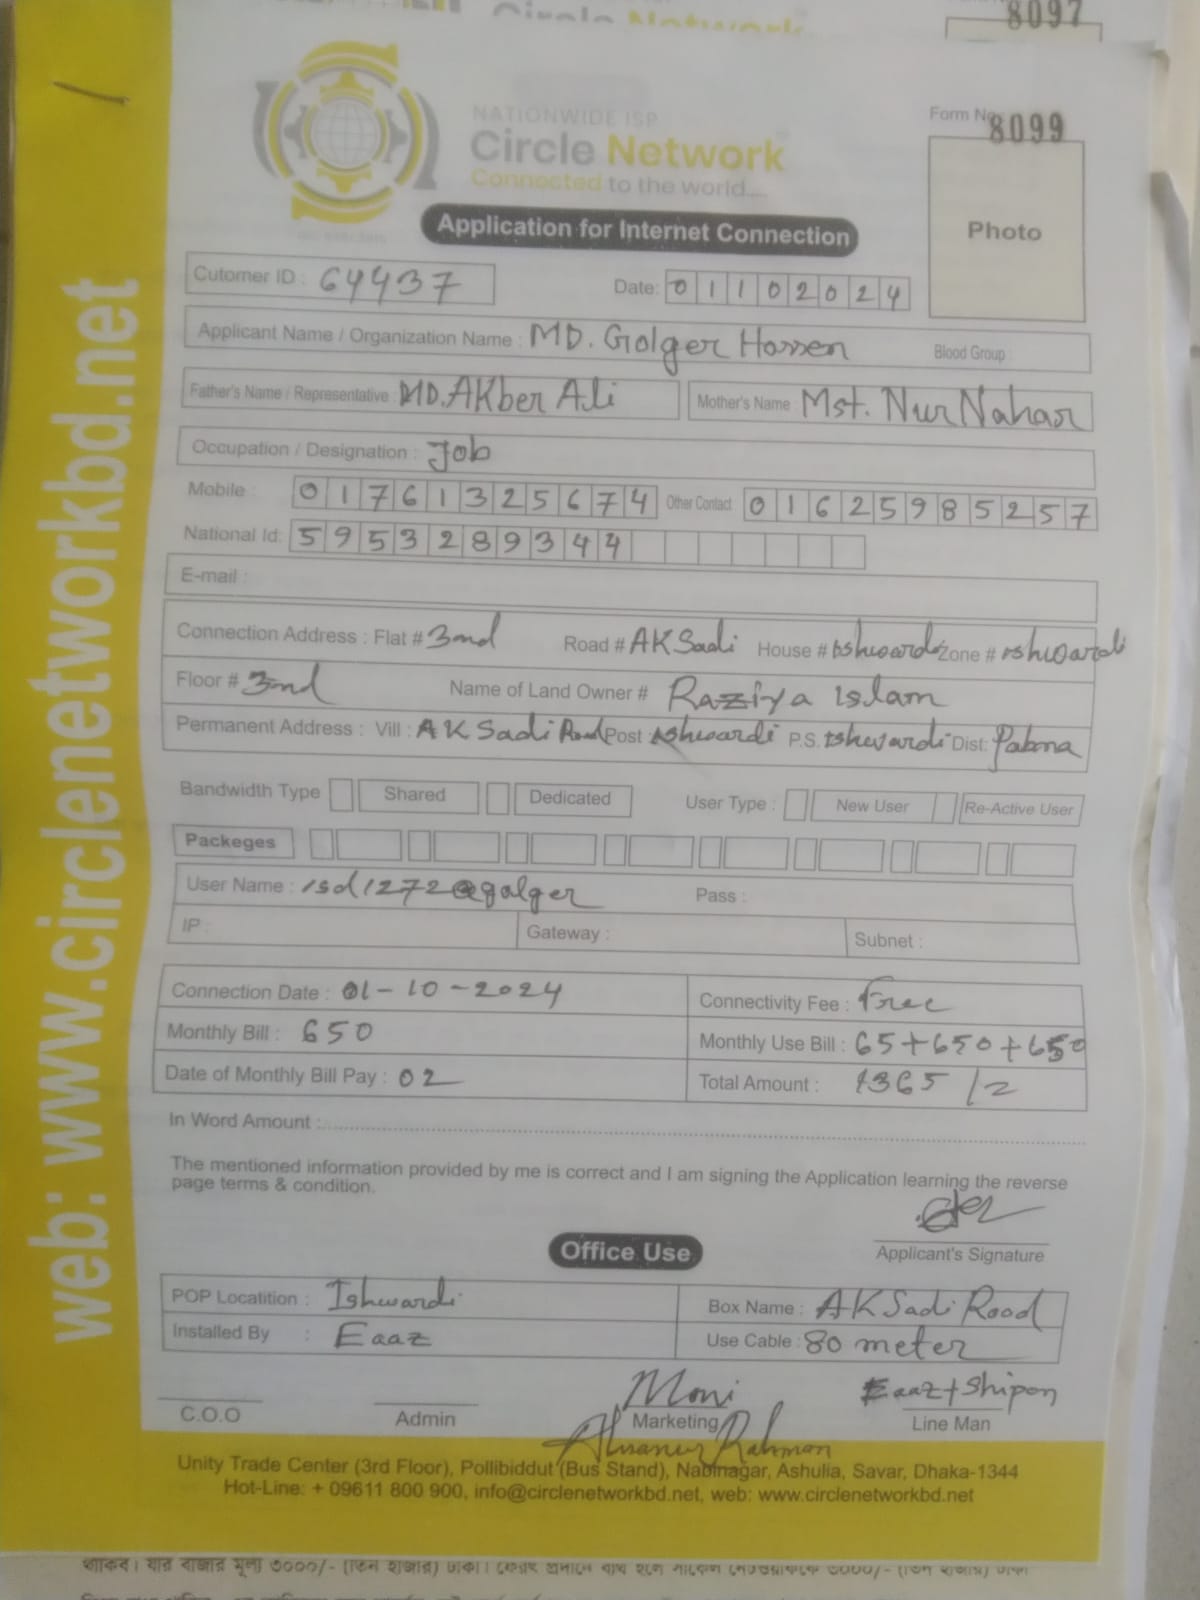 8097
Circle Network
NATIONWIDE ISP
Circle Network
Connected to the world....
Form No
8099
Photo
Application for Internet Connection
Cutomer ID : 64437 Date: 01102024
Applicant Name / Organization Name : MD. Golger Hossen Blood Group :
Father's Name / Representative : MD. AKber Ali Mother's Name : Mst. Nur Nahar
Occupation / Designation : Job
Mobile : 01761325674 Other Contact 01625985257
National Id: 5953289344
E-mail :
Connection Address : Flat # 3nd Road # AK Sadi House # Ishwardi Zone # Ishwardi
Floor # 3nd Name of Land Owner # Raziya Islam
Permanent Address : Vill : AK Sadi Road Post : Ishwardi P.S. Ishwardi Dist: Pabna
Bandwidth Type Shared Dedicated User Type : New User Re-Active User
Packeges
User Name : isd1272@galger Pass :
IP : Gateway : Subnet :
Connection Date : 01-10-2024 Connectivity Fee : Free
Monthly Bill : 650 Monthly Use Bill : 65+650+650
Date of Monthly Bill Pay : 02 Total Amount : 1365/2
In Word Amount :
The mentioned information provided by me is correct and I am signing the Application learning the reverse
page terms & condition.
Applicant's Signature
Office Use
POP Locatition : Ishwardi Box Name : AK Sadi Rood
Installed By : Eaaz Use Cable : 80 meter
Moni Eaaz+Shipon
C.O.O Admin Marketing Line Man
Rahman
Unity Trade Center (3rd Floor), Pollibiddut (Bus Stand), Nabinagar, Ashulia, Savar, Dhaka-1344
Hot-Line: + 09611 800 900, info@circlenetworkbd.net, web: www.circlenetworkbd.net
web: www.circlenetworkbd.net